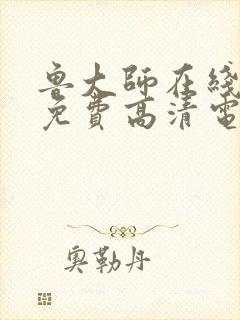 鲁大師在綫
免費高清電
奥勒丹